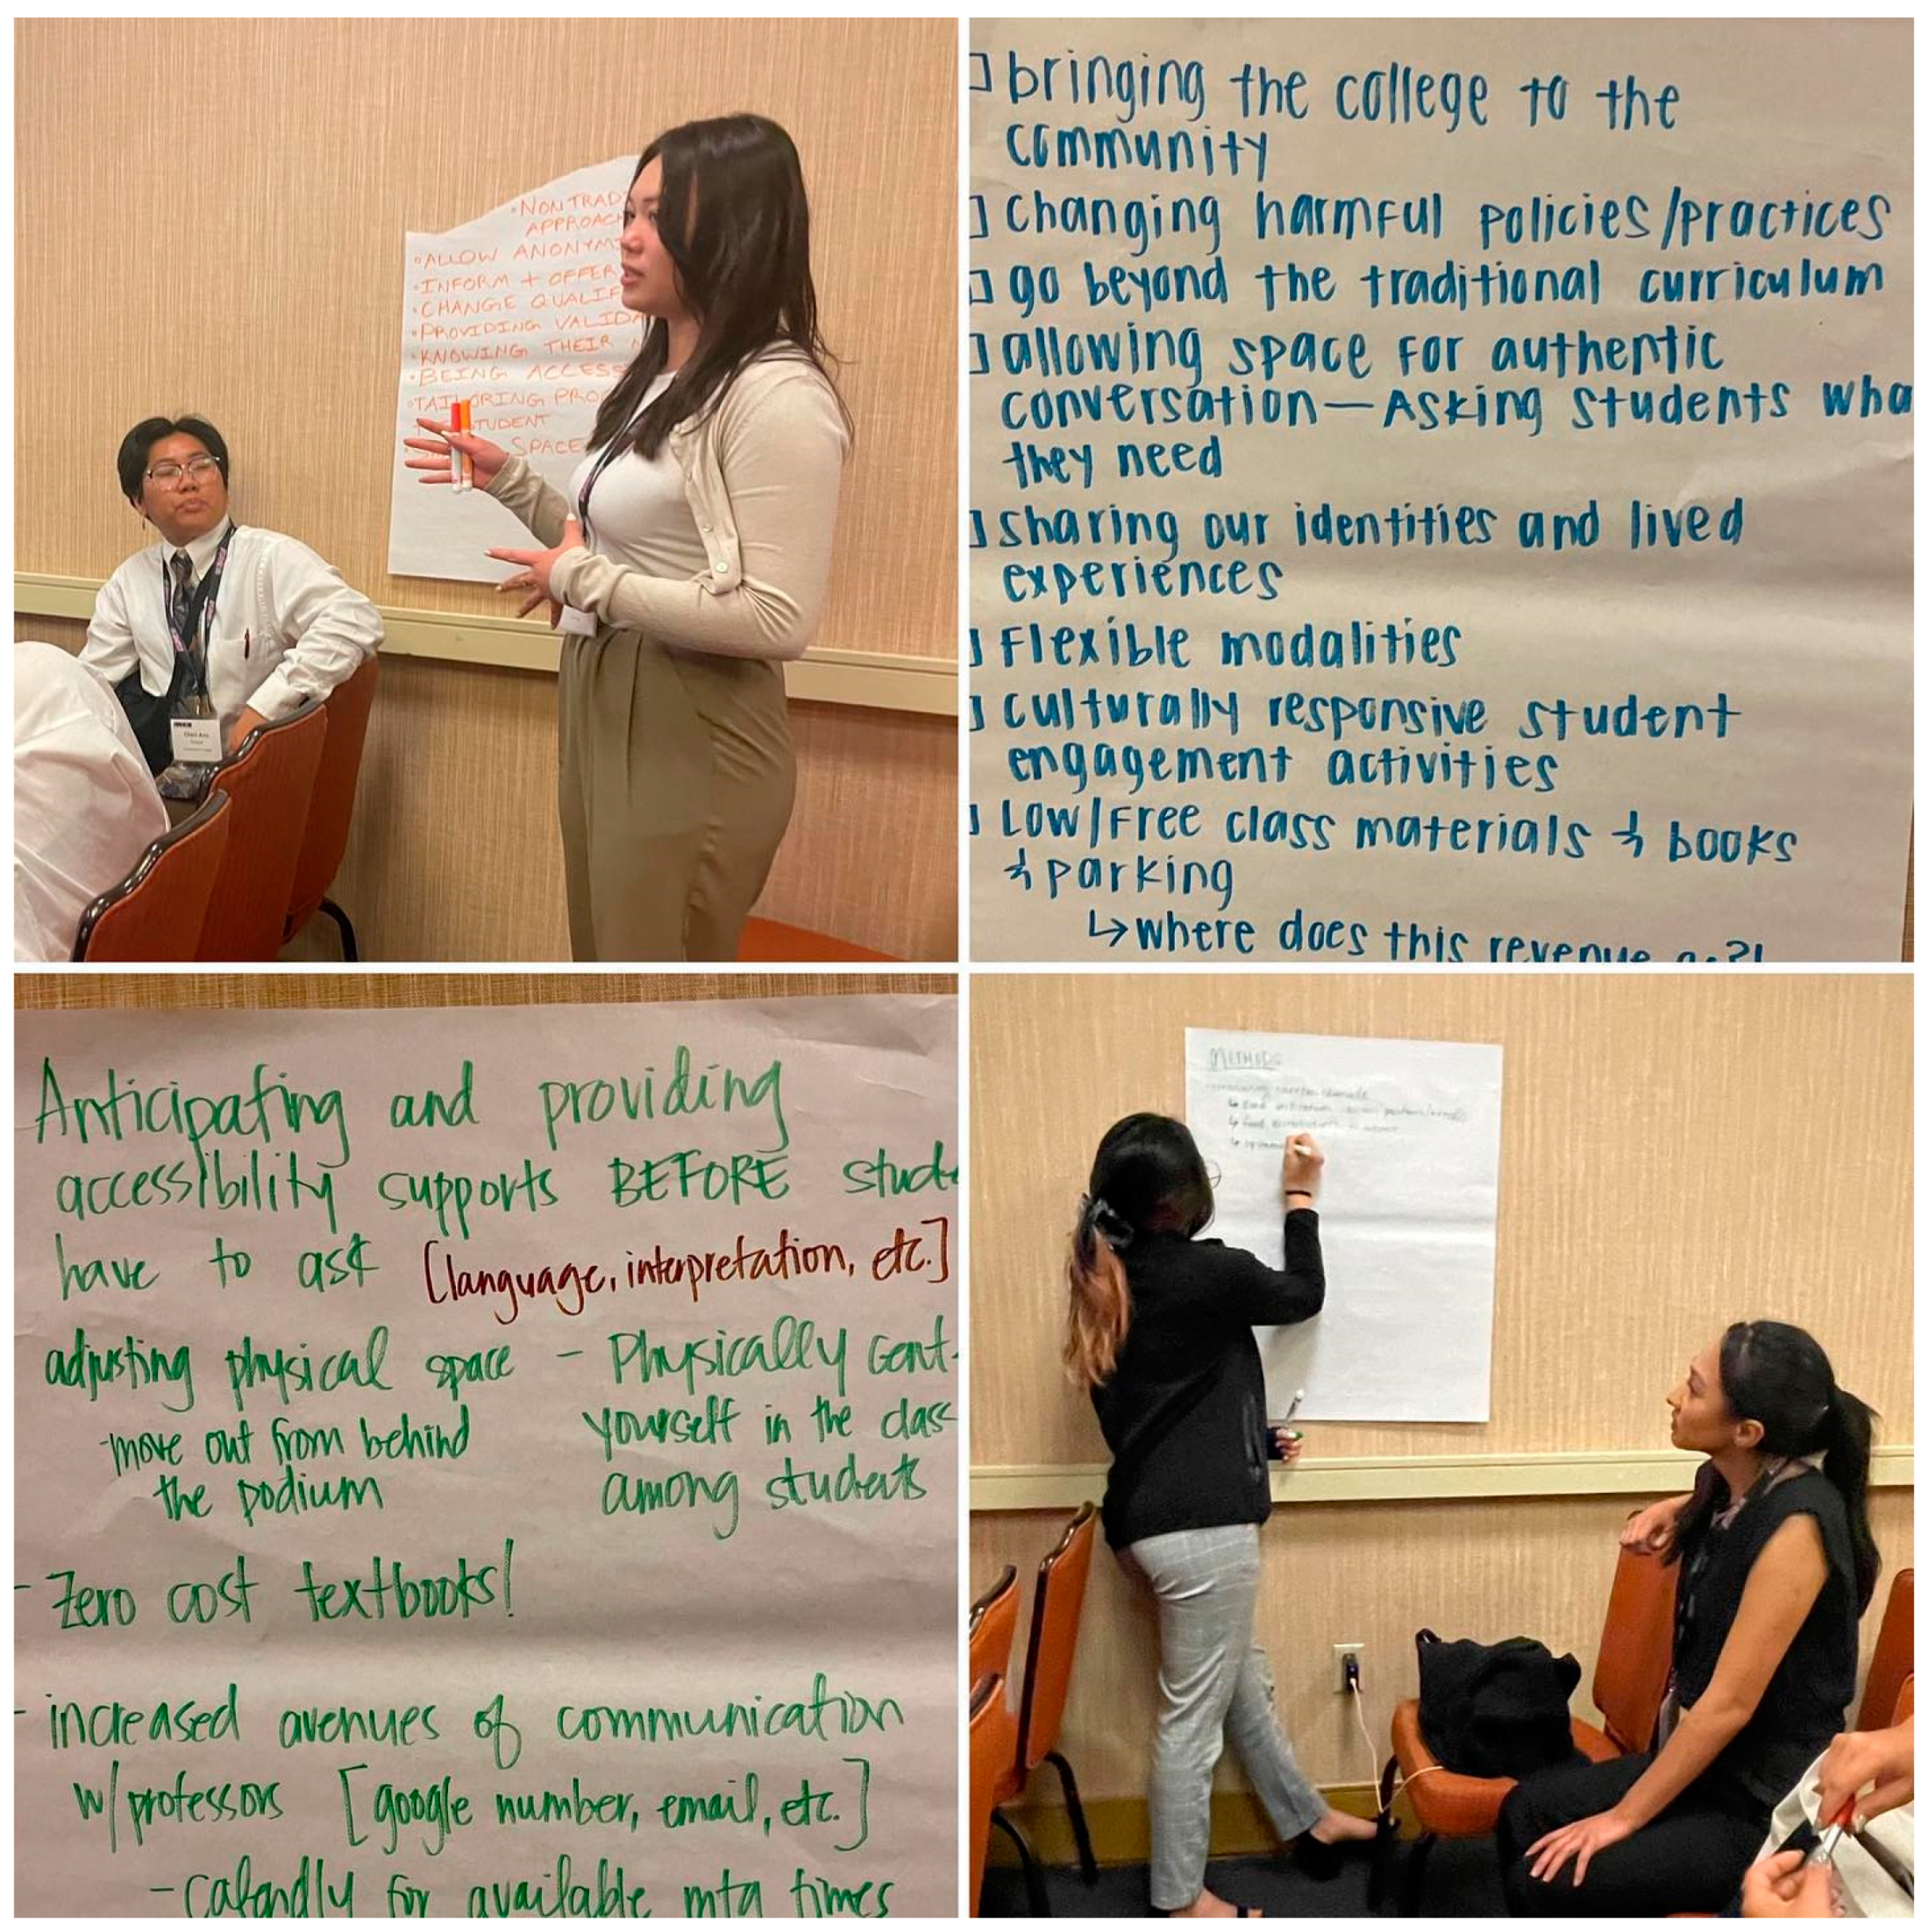 •NONTRAD
APPROAC
•ALLOW ANONYM
•INFORM + OFFER
•CHANGE QUALIF
•PROVIDING VALIDA
•KNOWING THEIR
•BEING ACCESS
•TAILORING PRO
STUDENT
SPACE
bringing the college to the
community
changing harmful policies/practices
go beyond the traditional curriculum
allowing space for authentic
conversation—Asking students wha
they need
sharing our identities and lived
experiences
Flexible modalities
culturally responsive student
engagement activities
Low/Free class materials & books
& parking
↳where does this revenue
Anticipating and providing
accessibility supports BEFORE stud
have to ask [language, interpretation, etc.]
adjusting physical space - Physically cent
-move out from behind yourself in the class
the podium among students
- Zero cost textbooks!
- increased avenues of communication
w/professors [google number, email, etc.]
- calandly for available mtg times
METHODS